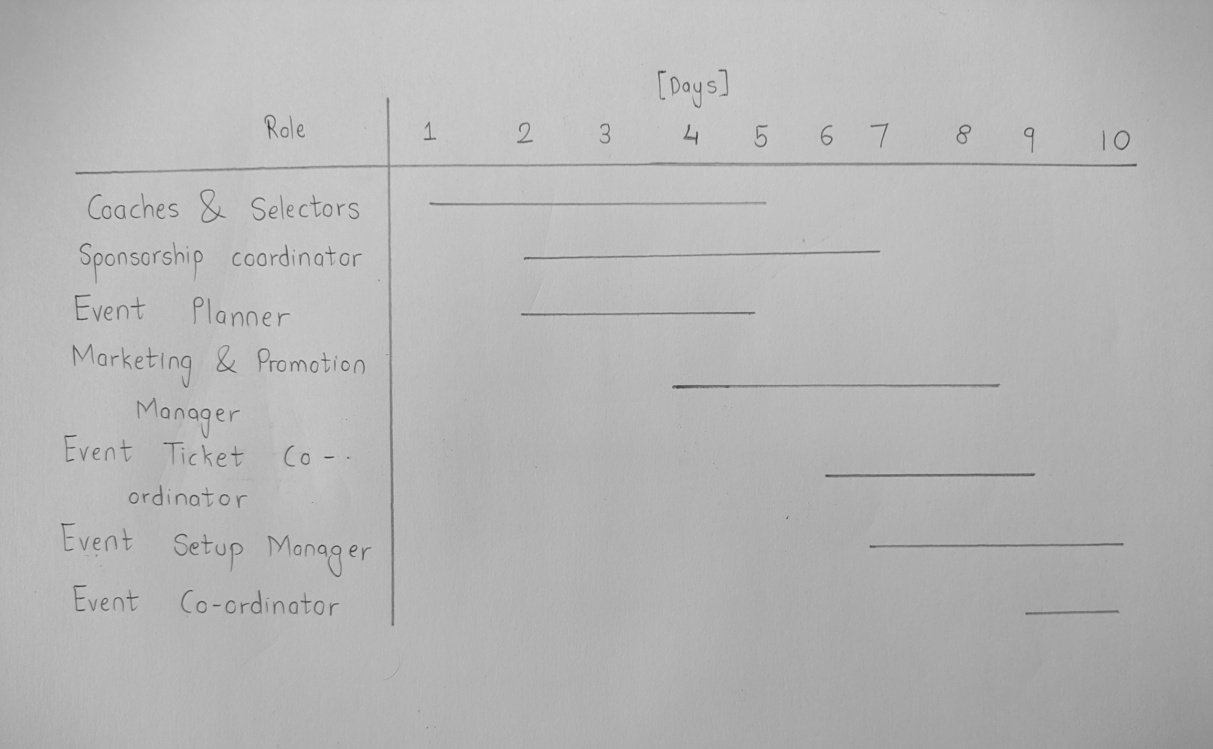 [Days]
Role 1 2 3 4 5 6 7 8 9 10
Coaches & Selectors
Sponsorship coordinator
Event Planner
Marketing & Promotion
Manager
Event Ticket Co--
ordinator
Event Setup Manager
Event Co-ordinator